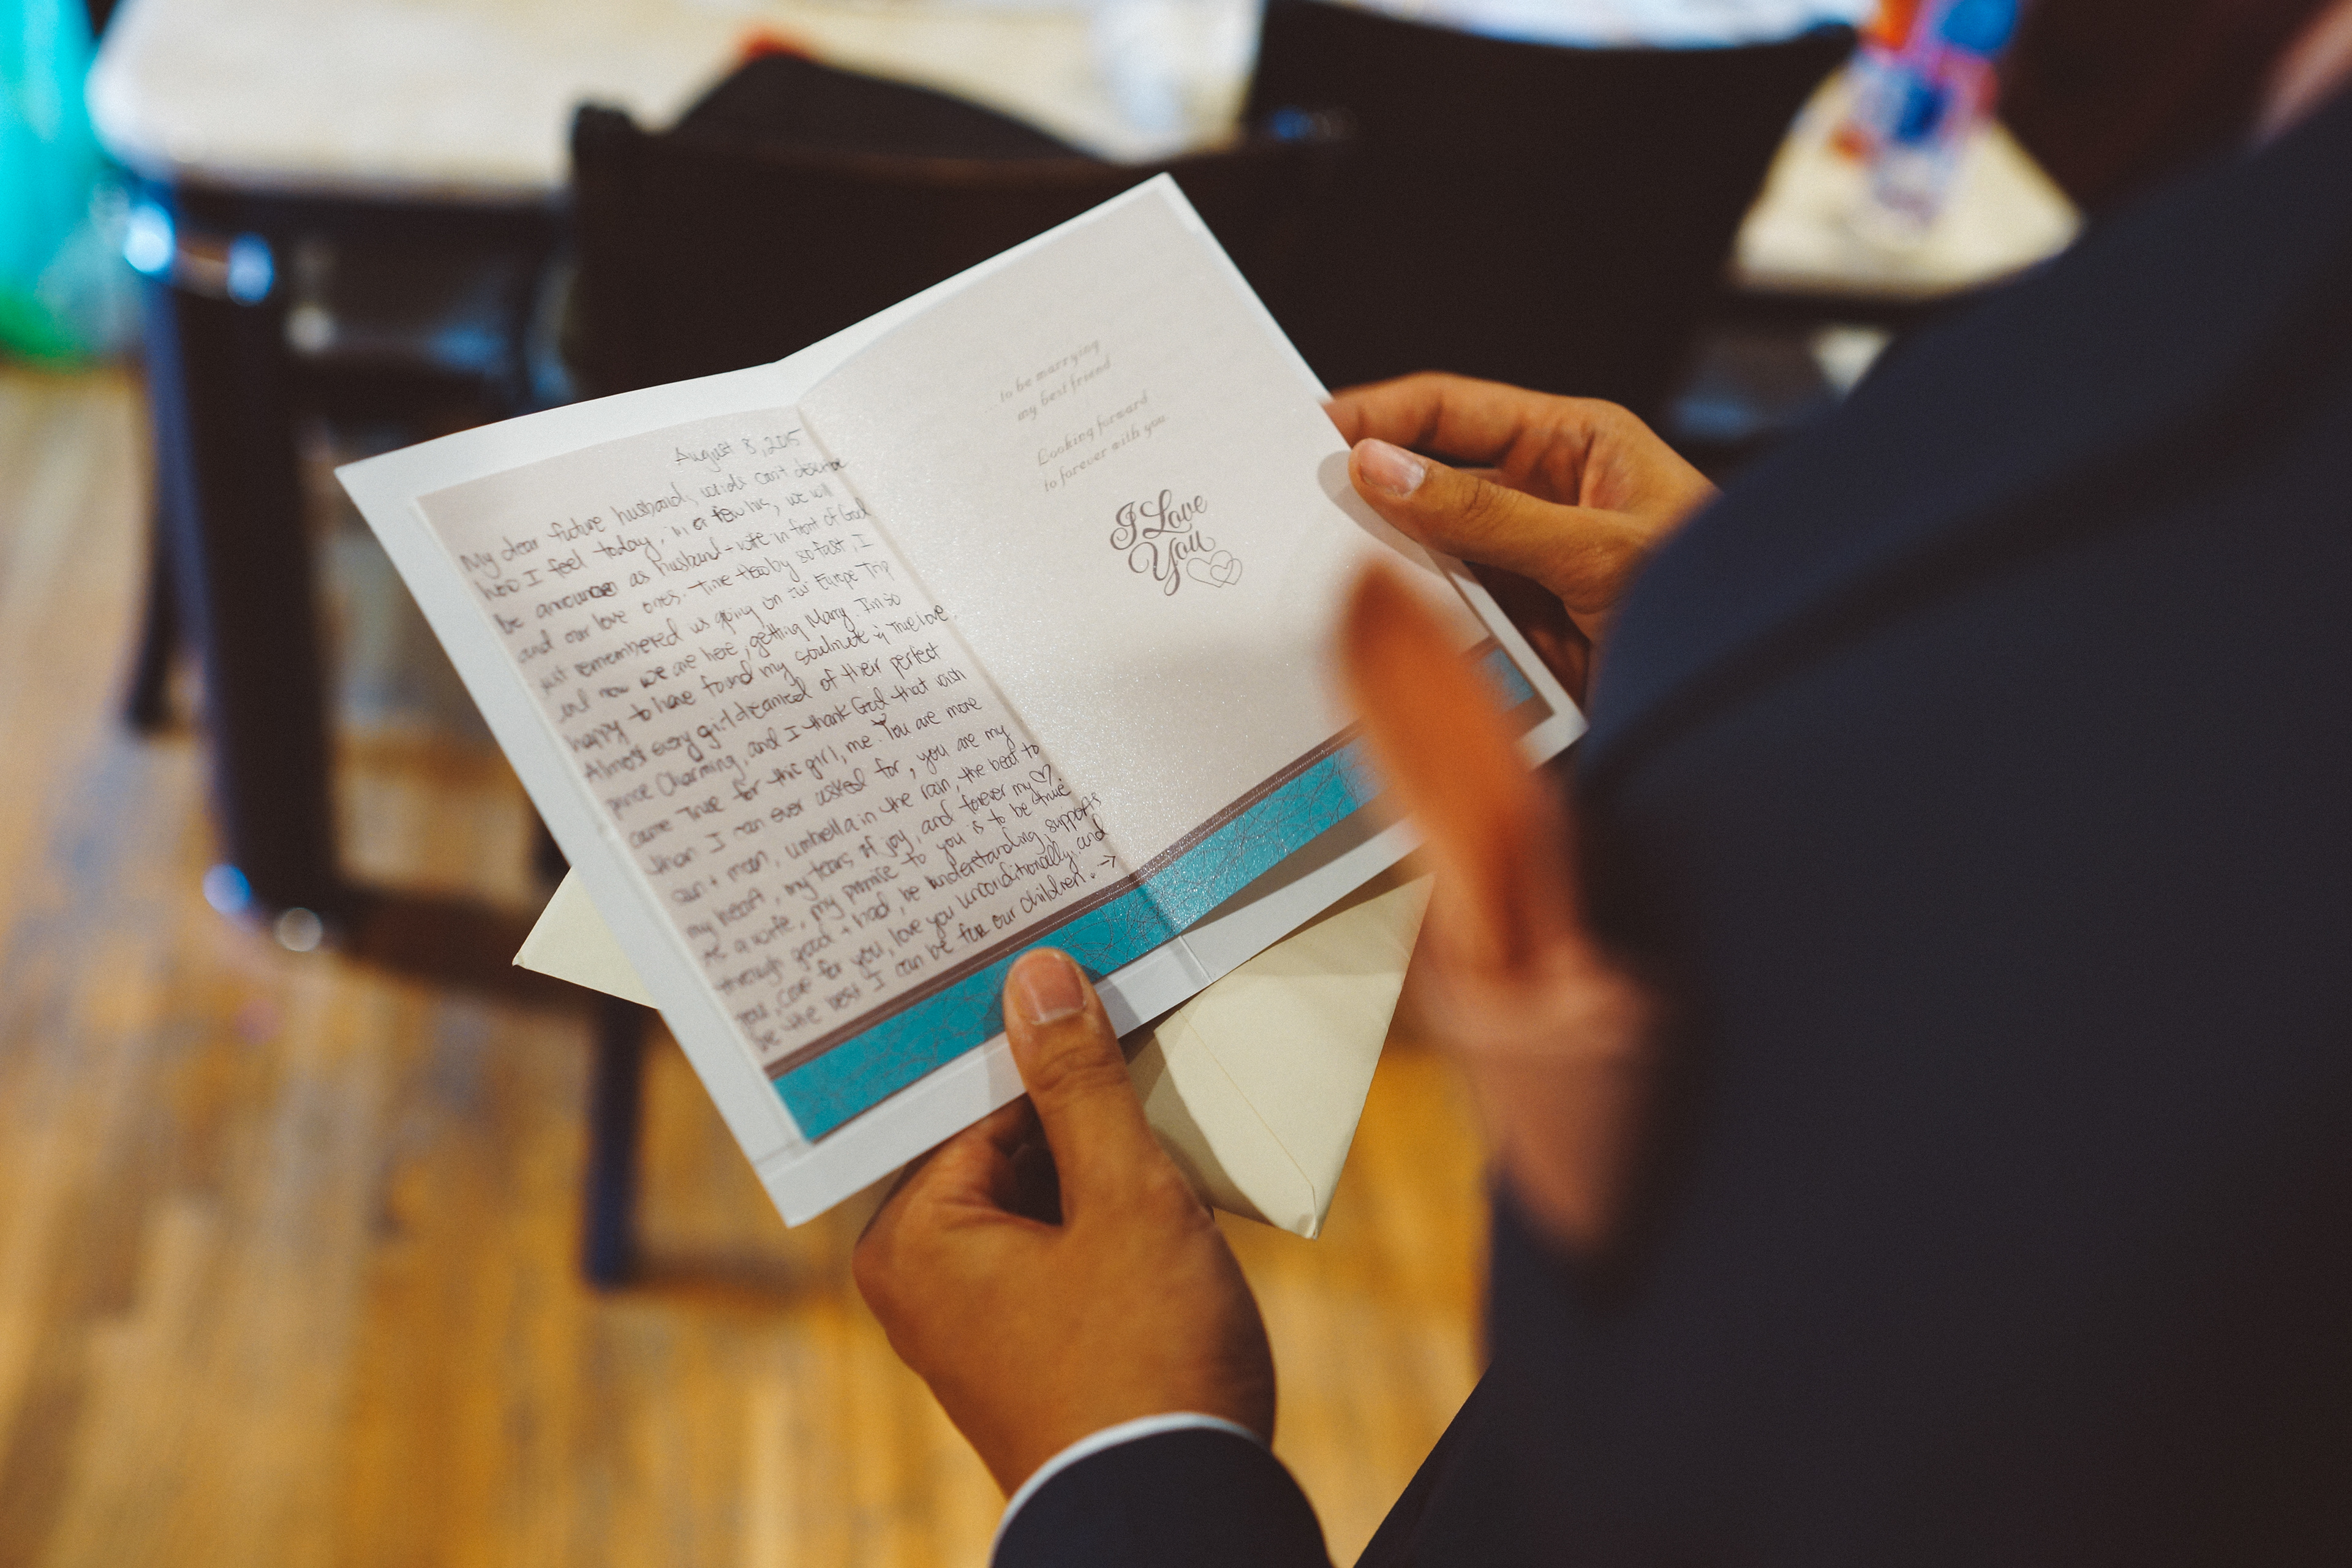 August 8, 2015
My dear future husband, words can't describe
how I feel today, in a few hrs, we will
be announced as husband + wife in front of God
and our love ones. Time flew by so fast, I
just remembered us going on our Europe Trip
and now we are here, getting Marry. I'm so
happy to have found my soulmate & True love.
Almost every girl dreamed of their perfect
prince Charming, and I thank God that wish
came True for this girl, me. You are more
than I can ever asked for, you are my
sun + moon, umbrella in the rain, the beat to
my heart, my tears of joy, and forever my ♡.
As a wife, my promise to you is to be true
through good + bad, be understanding, supports
you, care for you, love you unconditionally, and
be the best I can be for our children. →
to be marrying
my best friend
Looking forward
to forever with you.
I Love
You